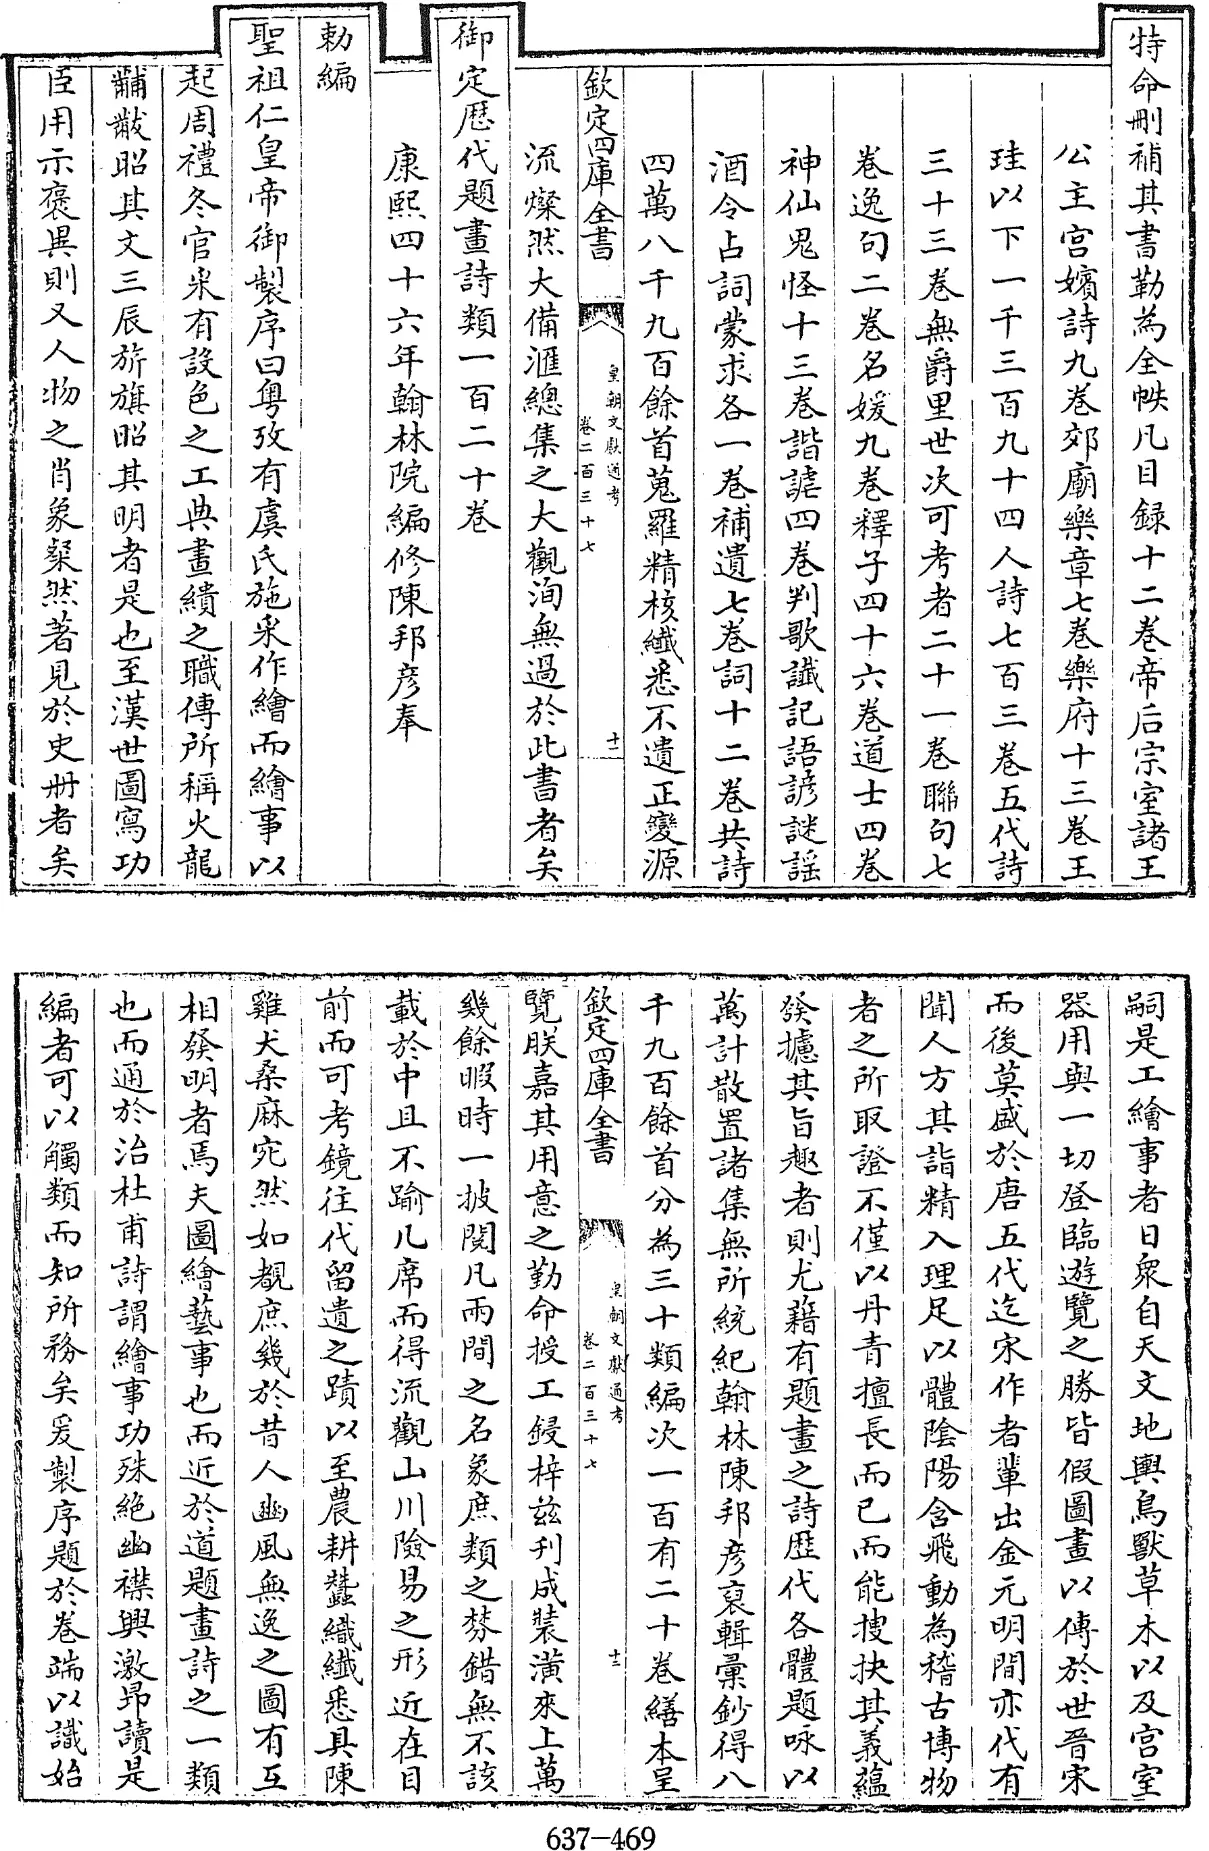 特命刪補其書勒為全帙凡目録十二卷帝后宗室諸王
公主宫嬪詩九卷郊廟樂章七卷樂府十三卷王
珪以下一千三百九十四人詩七百三卷五代詩
三十三卷無爵里世次可考者二十一卷聯句七
卷逸句二卷名媛九卷釋子四十六卷道士四卷
神仙鬼怪十三卷諧謔四卷判歌讖記語諺謎謡
酒令占詞蒙求各一卷補遺七卷詞十二卷共詩
四萬八千九百餘首蒐羅精核纎悉不遺正變源
欽定四庫全書
皇朝文獻通考
卷二百三十七
十二
流燦然大備滙總集之大觀洵無過於此書者矣
御定歴代題畫詩類一百二十卷
康熙四十六年翰林院編修陳邦彦奉
勅編
聖祖仁皇帝御製序曰粤攷有虞氏施采作繪而繪事以
起周禮冬官釆有設色之工典畫繢之職傳所稱火龍
黼黻昭其文三辰旂旗昭其明者是也至漢世圖寫功
臣用示褒異則又人物之肖象粲然著見於史册者矣
嗣是工繪事者日衆自天文地輿鳥獸草木以及宫室
器用與一切登臨遊覽之勝皆假圖畫以傳於世晉宋
而後莫盛於唐五代迄宋作者軰出金元明間亦代有
聞人方其詣精入理足以體陰陽含飛動為稽古博物
者之所取證不僅以丹青擅長而已而能搜抉其義藴
發攄其旨趣者則尤藉有題畫之詩歴代各體題咏以
萬計散置諸集無所統紀翰林陳邦彦裒輯彙鈔得八
千九百餘首分為三十類編次一百有二十卷繕本呈
欽定四庫全書
皇朝文獻通考
卷二百三十七
十三
覽朕嘉其用意之勤命授工鋟梓兹刋成裝潢來上萬
幾餘暇時一披閲凡兩間之名象庶類之棼錯無不該
載於中且不踰几席而得流觀山川險易之形近在目
前而可考鏡往代留遺之蹟以至農耕蠶織纎悉具陳
雞犬桑麻宛然如覩庶幾於昔人豳風無逸之圖有互
相發明者焉夫圖繪藝事也而近於道題畫詩之一類
也而通於治杜甫詩謂繪事功殊絶幽襟興激昂讀是
編者可以觸類而知所務矣爰製序題於卷端以識始
637-469